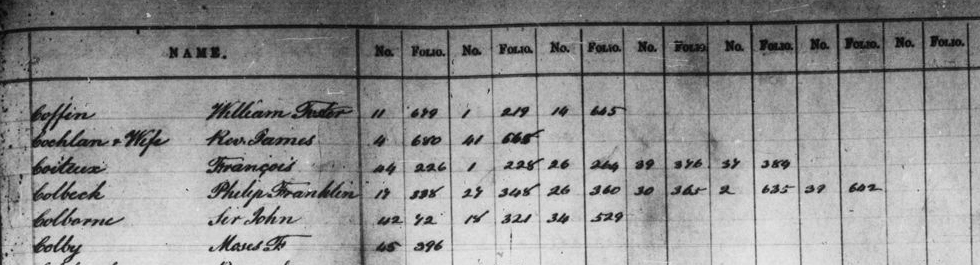 NAME. No. FOLIO. No. FOLIO. No. FOLIO. No. FOLIO. No. FOLIO. No. FOLIO. No. FOLIO.
Coffin William Foster 11 679 1 219 14 645
Cochlan & Wife Rev. James 4 680 41
Coiteux François 44 226 1 228 26 264 39 376 37 384
Colbeck Philip Franklin 17 338 27 348 26 360 30 365 2 635 39 642
Colborne Sir John 42 72 18 321 34 529
Colby Moses F. 45 396